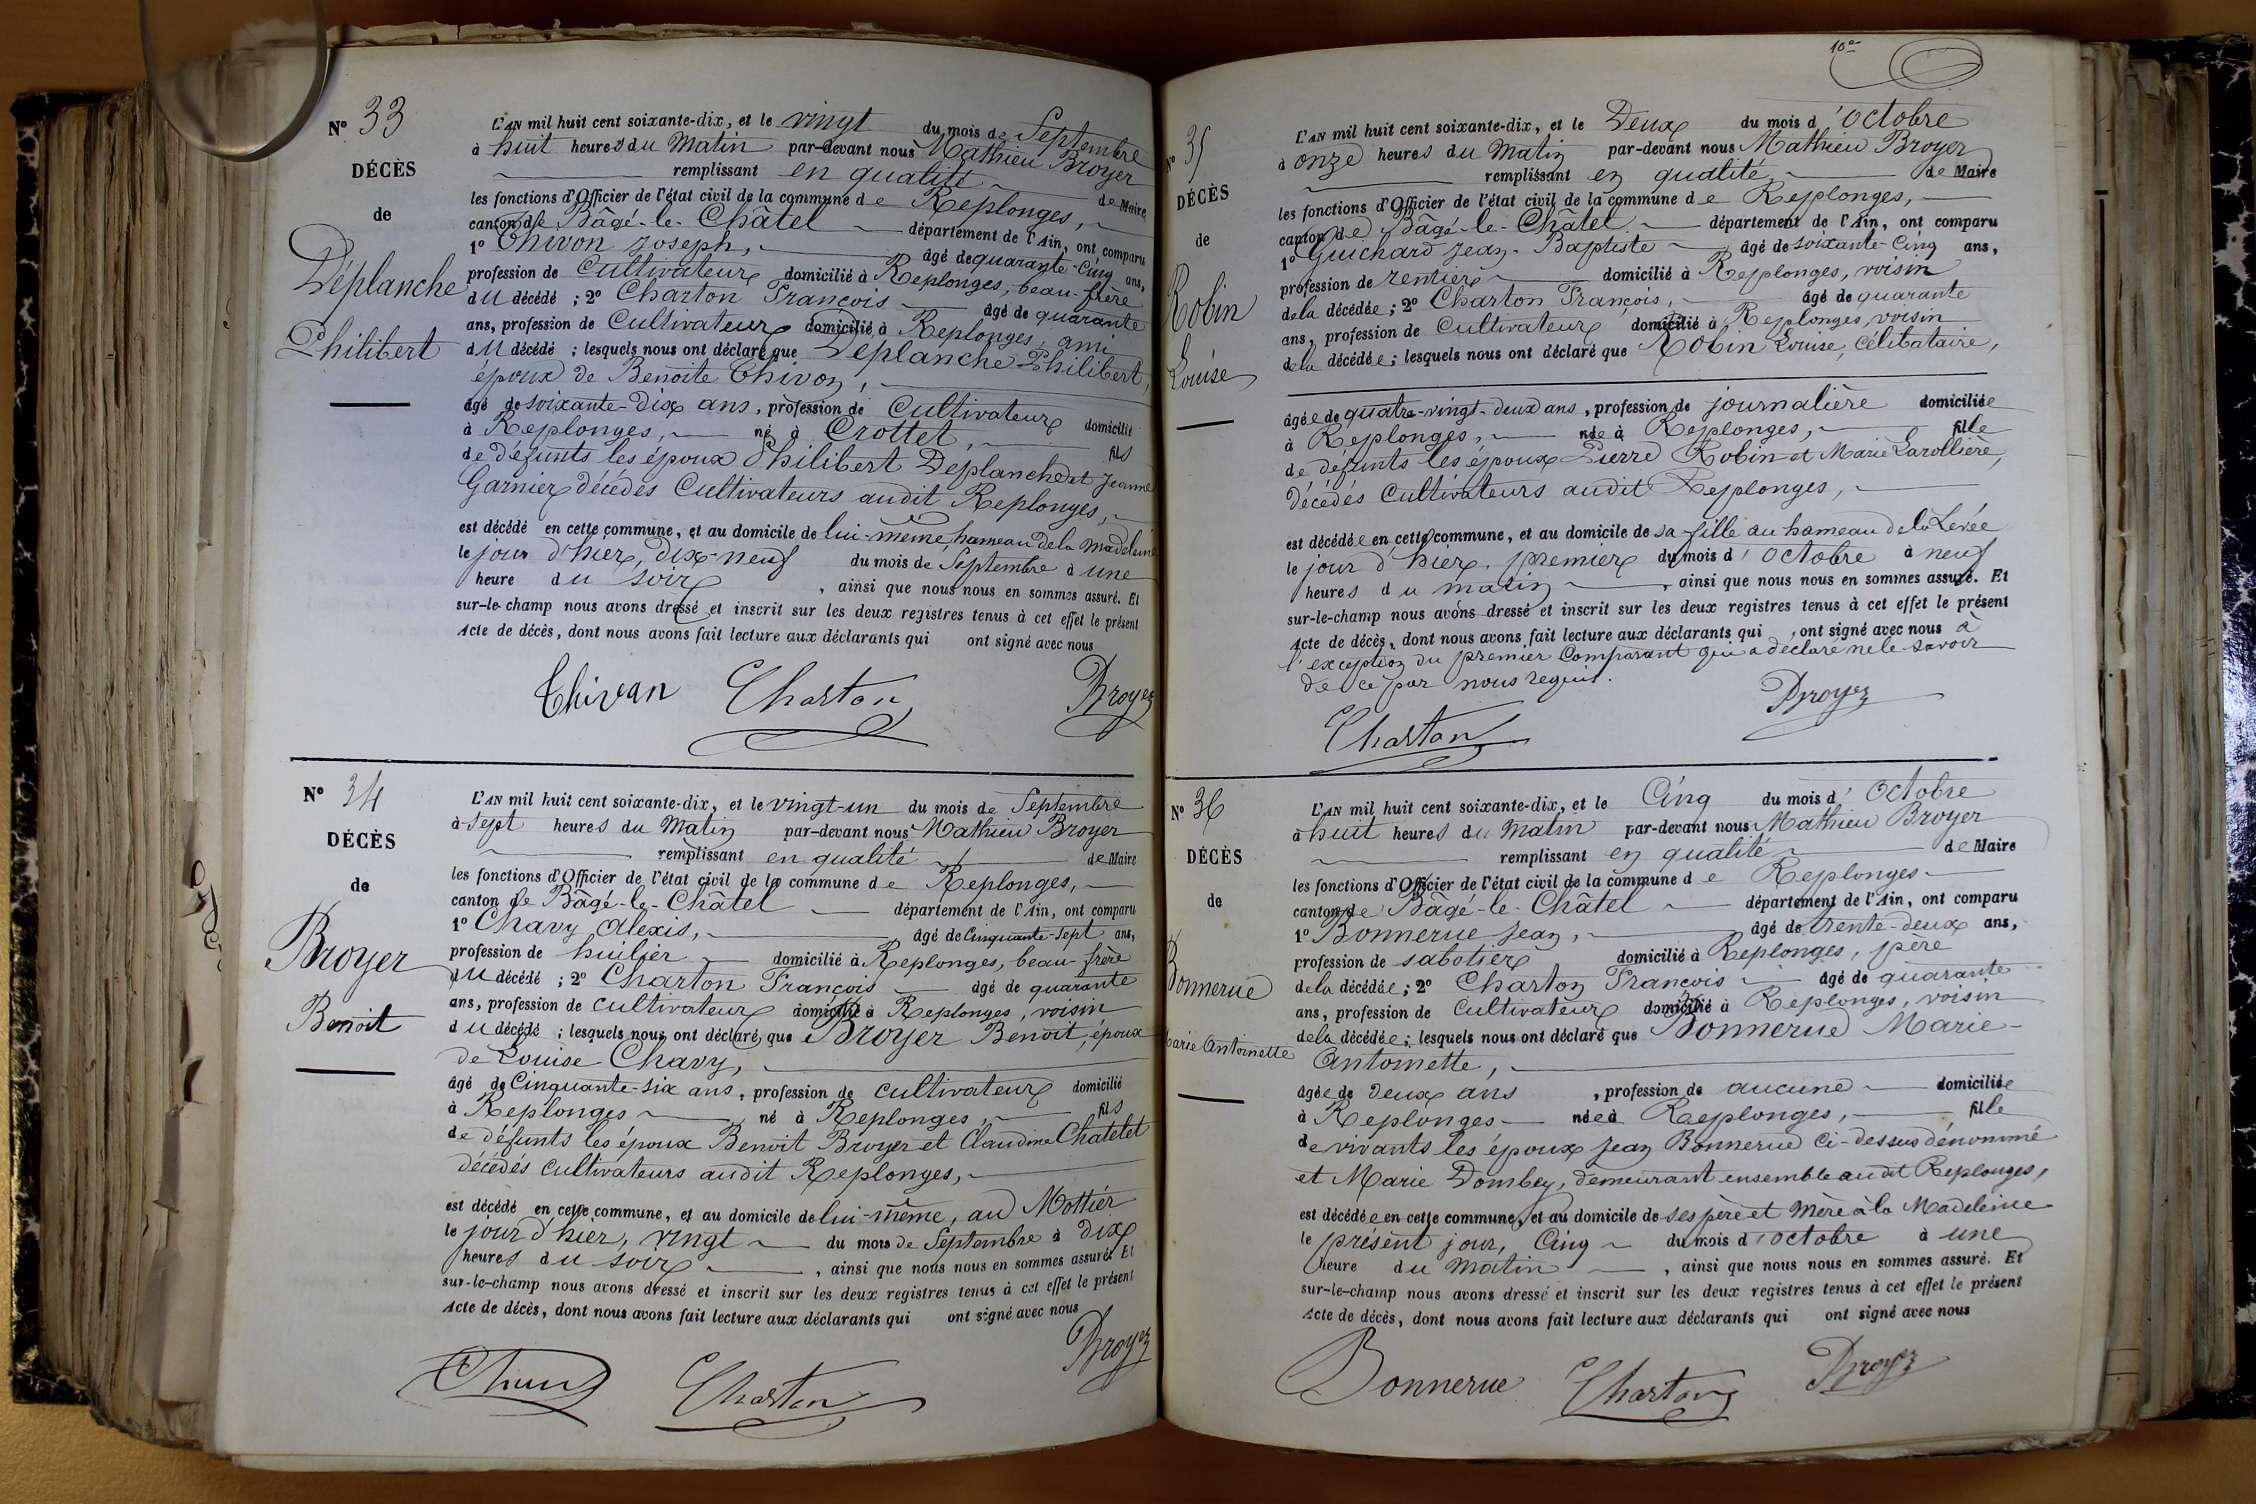 N° 33
DÉCÈS
de
Déplanche
Philibert
L'AN mil huit cent soixante-dix, et le vingt du mois de Septembre
à huit heures du Matin par-devant nous Mathieu Broyer
remplissant en qualité de Maire
les fonctions d'Officier de l'état civil de la commune de Replonges,
canton de Bâgé-le-Châtel département de l'Ain, ont comparu
1° Chivon Joseph, âgé de quarante-cinq ans,
profession de Cultivateur domicilié à Replonges, beau-frère
du décédé ; 2° Charton François âgé de quarante
ans, profession de Cultivateur domicilié à Replonges, ami
du décédé ; lesquels nous ont déclaré que Déplanche Philibert,
époux de Benoîte Chivon,
âgé de soixante-dix ans, profession de Cultivateur domicilié
à Replonges, né à Crottet, fils
de défunts les époux Philibert Déplanche et Jeanne
Garnier décédés Cultivateurs audit Replonges,
est décédé en cette commune, et au domicile de lui-même, hameau de la Madeleine
le jour d'hier, dix-neuf du mois de Septembre à une
heure du soir , ainsi que nous nous en sommes assuré. Et
sur-le-champ nous avons dressé et inscrit sur les deux registres tenus à cet effet le présent
Acte de décès, dont nous avons fait lecture aux déclarants qui ont signé avec nous
Chivan Charton Broyer
N° 34
DÉCÈS
de
Broyer
Benoit
L'AN mil huit cent soixante-dix, et le vingt-un du mois de Septembre
à sept heures du Matin par-devant nous Mathieu Broyer
remplissant en qualité de Maire
les fonctions d'Officier de l'état civil de la commune de Replonges,
canton de Bâgé-le-Châtel département de l'Ain, ont comparu
1° Chavy Alexis, âgé de Cinquante-sept ans,
profession de huilier domicilié à Replonges, beau-frère
du décédé ; 2° Charton François âgé de quarante
ans, profession de cultivateur domicilié à Replonges, voisin
du décédé ; lesquels nous ont déclaré que Broyer Benoit, époux
de Louise Chavy,
âgé de Cinquante-six ans, profession de cultivateur domicilié
à Replonges né à Replonges, fils
de défunts les époux Benoit Broyer et Claudine Chatelet
décédés cultivateurs audit Replonges,
est décédé en cette commune, et au domicile de lui-même, au Mottier
le jour d'hier, vingt du mois de Septembre à dix
heures du soir , ainsi que nous nous en sommes assuré. Et
sur-le-champ nous avons dressé et inscrit sur les deux registres tenus à cet effet le présent
Acte de décès, dont nous avons fait lecture aux déclarants qui ont signé avec nous
Charton Broyer
10e
N° 35
DÉCÈS
de
Robin
Louise
L'AN mil huit cent soixante-dix, et le Deux du mois d'Octobre
à onze heures du Matin par-devant nous Mathieu Broyer
remplissant en qualité de Maire
les fonctions d'Officier de l'état civil de la commune de Replonges,
canton de Bâgé-le-Châtel département de l'Ain, ont comparu
1° Guichard Jean-Baptiste âgé de soixante-cinq ans,
profession de rentier domicilié à Replonges, voisin
de la décédée ; 2° Charton François, âgé de quarante
ans, profession de cultivateur domicilié à Replonges, voisin
de la décédée ; lesquels nous ont déclaré que Robin Louise, Célibataire,
âgée de quatre-vingt-deux ans, profession de journalière domiciliée
à Replonges, née à Replonges, fille
de défunts les époux Pierre Robin et Marie Larollière,
décédés Cultivateurs audit Replonges,
est décédée en cette commune, et au domicile de sa fille au hameau de la Levée
le jour d'hier, premier du mois d'octobre à neuf
heures du matin , ainsi que nous nous en sommes assuré. Et
sur-le-champ nous avons dressé et inscrit sur les deux registres tenus à cet effet le présent
Acte de décès, dont nous avons fait lecture aux déclarants qui , ont signé avec nous à
l'exception du premier Comparant qui a déclaré ne le savoir
de ce par nous requis.
Charton Broyer
N° 36
DÉCÈS
de
Bonnerue
Marie Antoinette
L'AN mil huit cent soixante-dix, et le Cinq du mois d'Octobre
à huit heures du Matin par-devant nous Mathieu Broyer
remplissant en qualité de Maire
les fonctions d'Officier de l'état civil de la commune de Replonges
canton de Bâgé-le-Châtel département de l'Ain, ont comparu
1° Bonnerue Jean, âgé de trente-deux ans,
profession de sabotier domicilié à Replonges, père
de la décédée ; 2° Charton François âgé de quarante
ans, profession de Cultivateur domicilié à Replonges, voisin
de la décédée ; lesquels nous ont déclaré que Bonnerue Marie-
Antoinette,
âgée de deux ans , profession de aucune domiciliée
à Replonges née à Replonges, fille
de vivants les époux Jean Bonnerue Ci-dessus dénommé
et Marie Dombey, demeurant ensemble audit Replonges,
est décédée en cette commune, et au domicile de ses père et mère à la Madeleine
le présent jour, Cinq du mois d'octobre à une
heure du Matin , ainsi que nous nous en sommes assuré. Et
sur-le-champ nous avons dressé et inscrit sur les deux registres tenus à cet effet le présent
Acte de décès, dont nous avons fait lecture aux déclarants qui ont signé avec nous
Bonnerue Charton Broyer